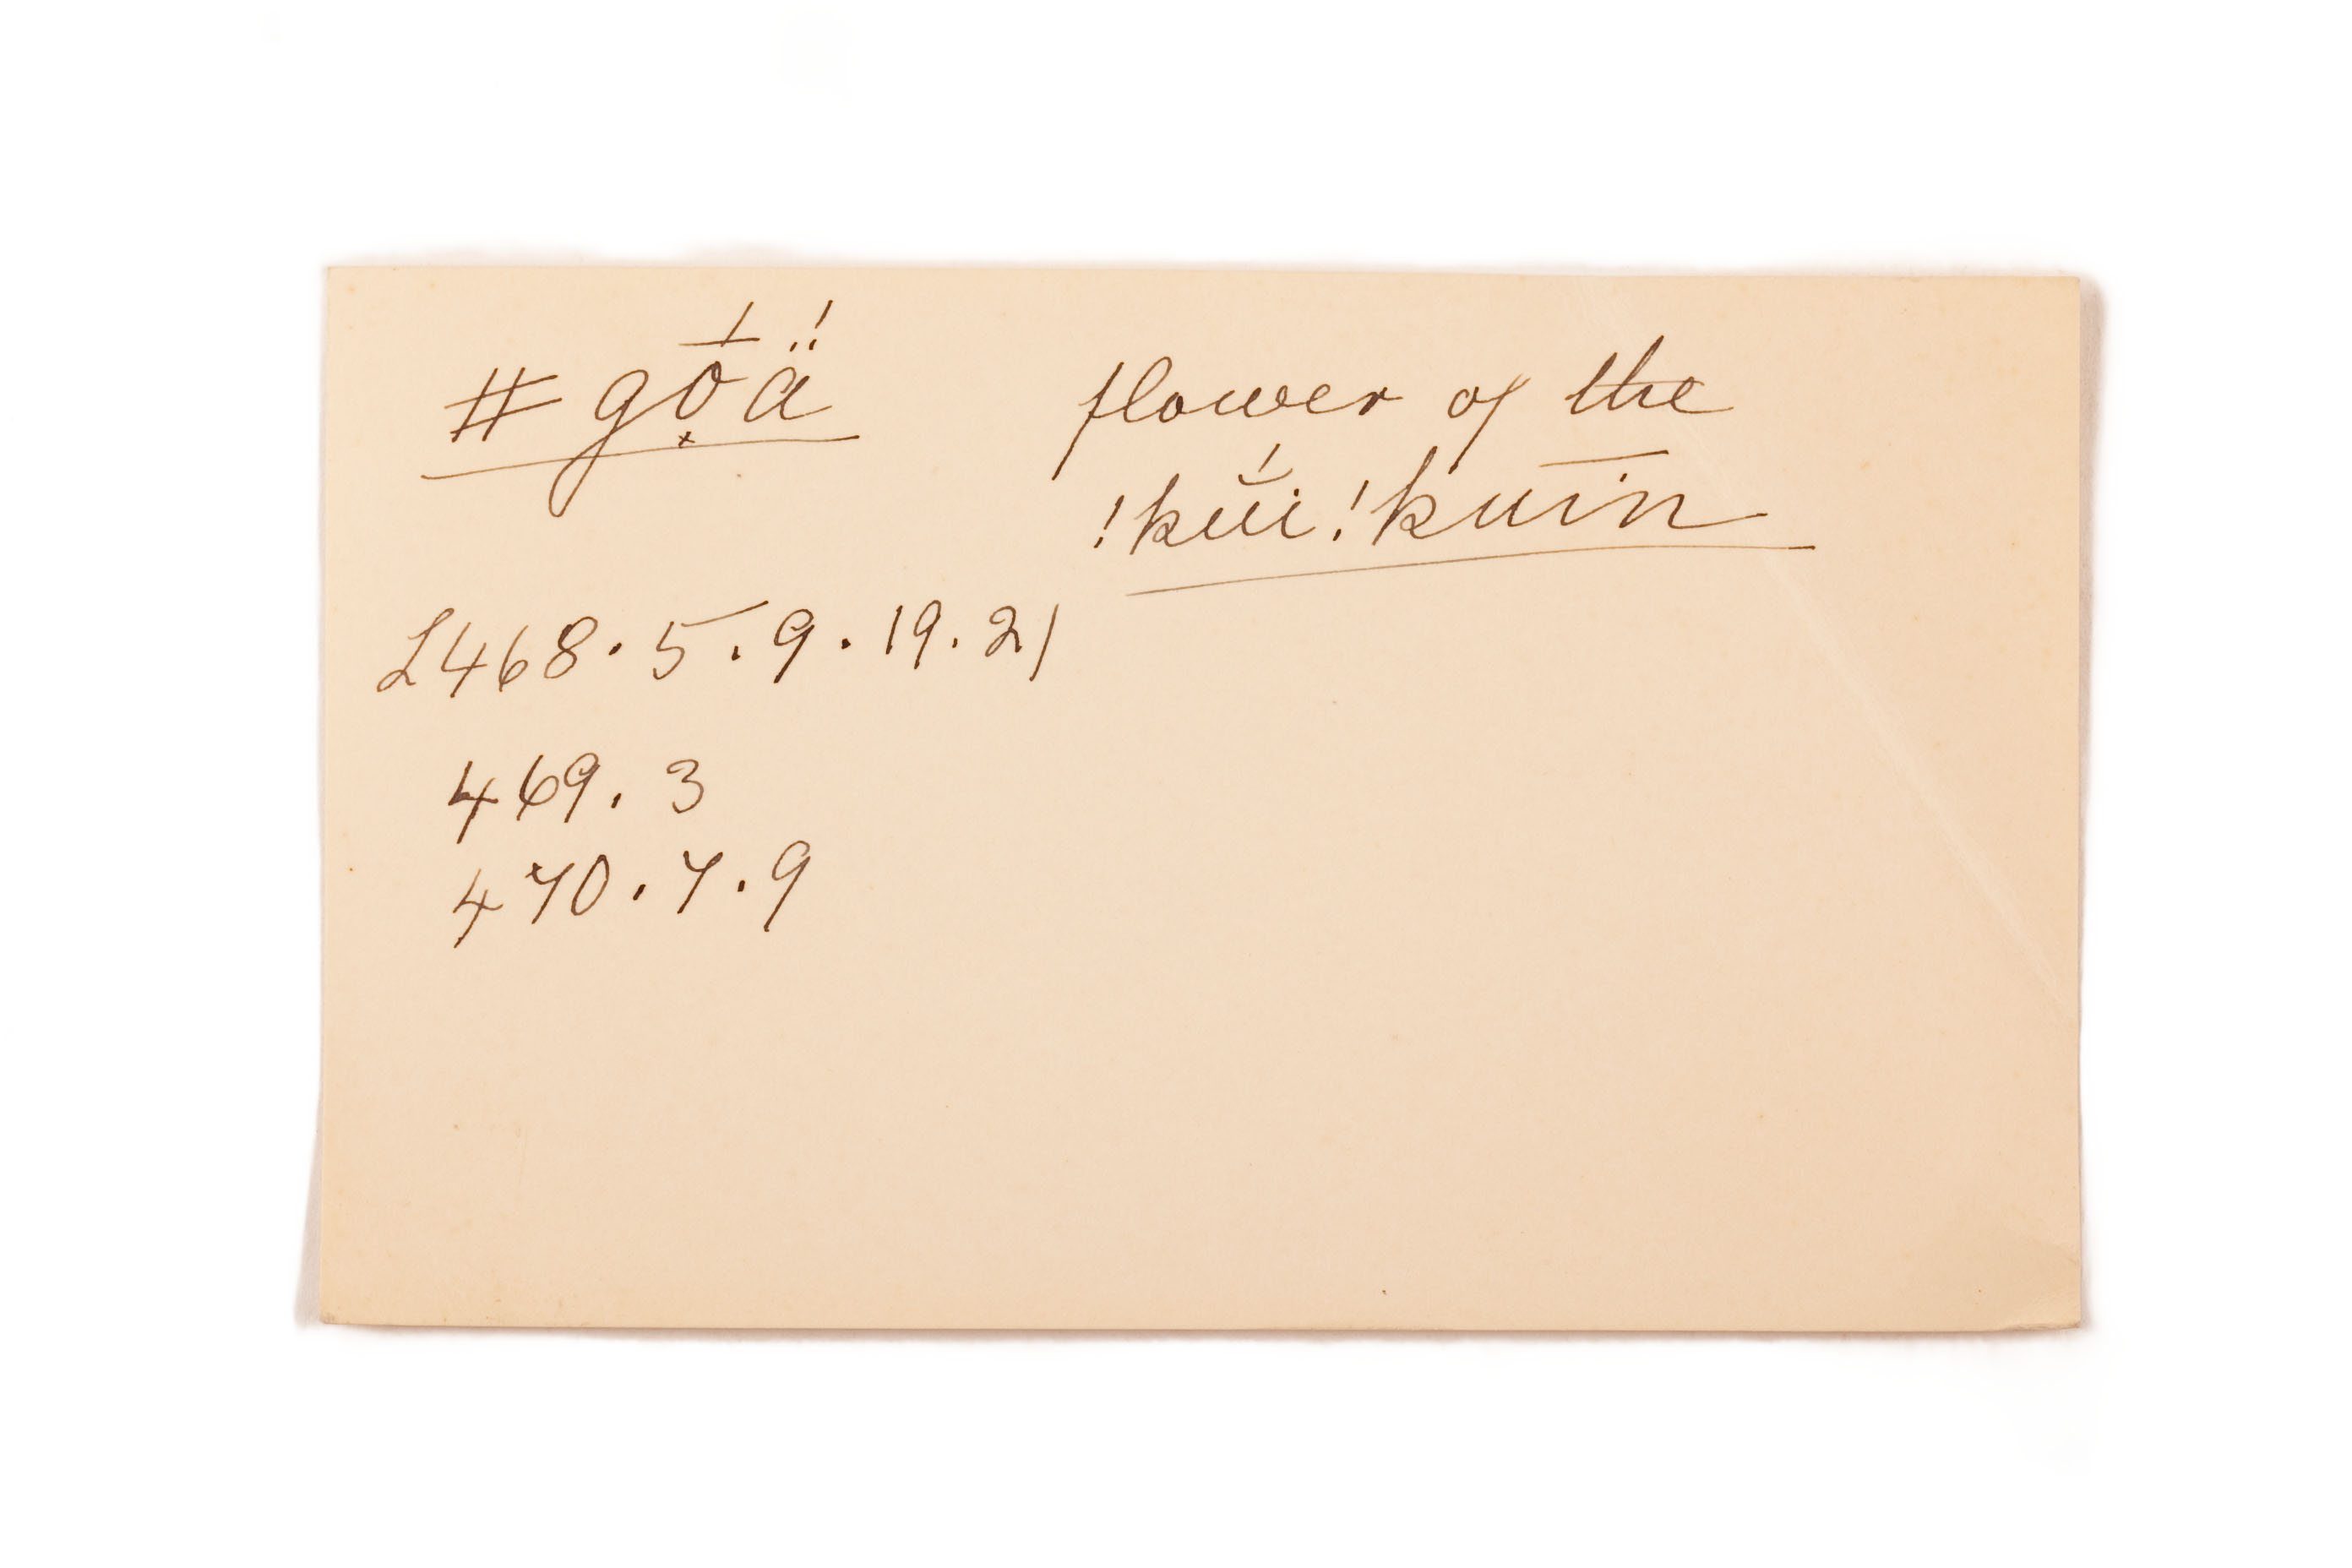 ǂgṓ̩ä́ flower of the
!kŭ́i!kuīn
L468.5.9.19.21
469.3
470.7.9